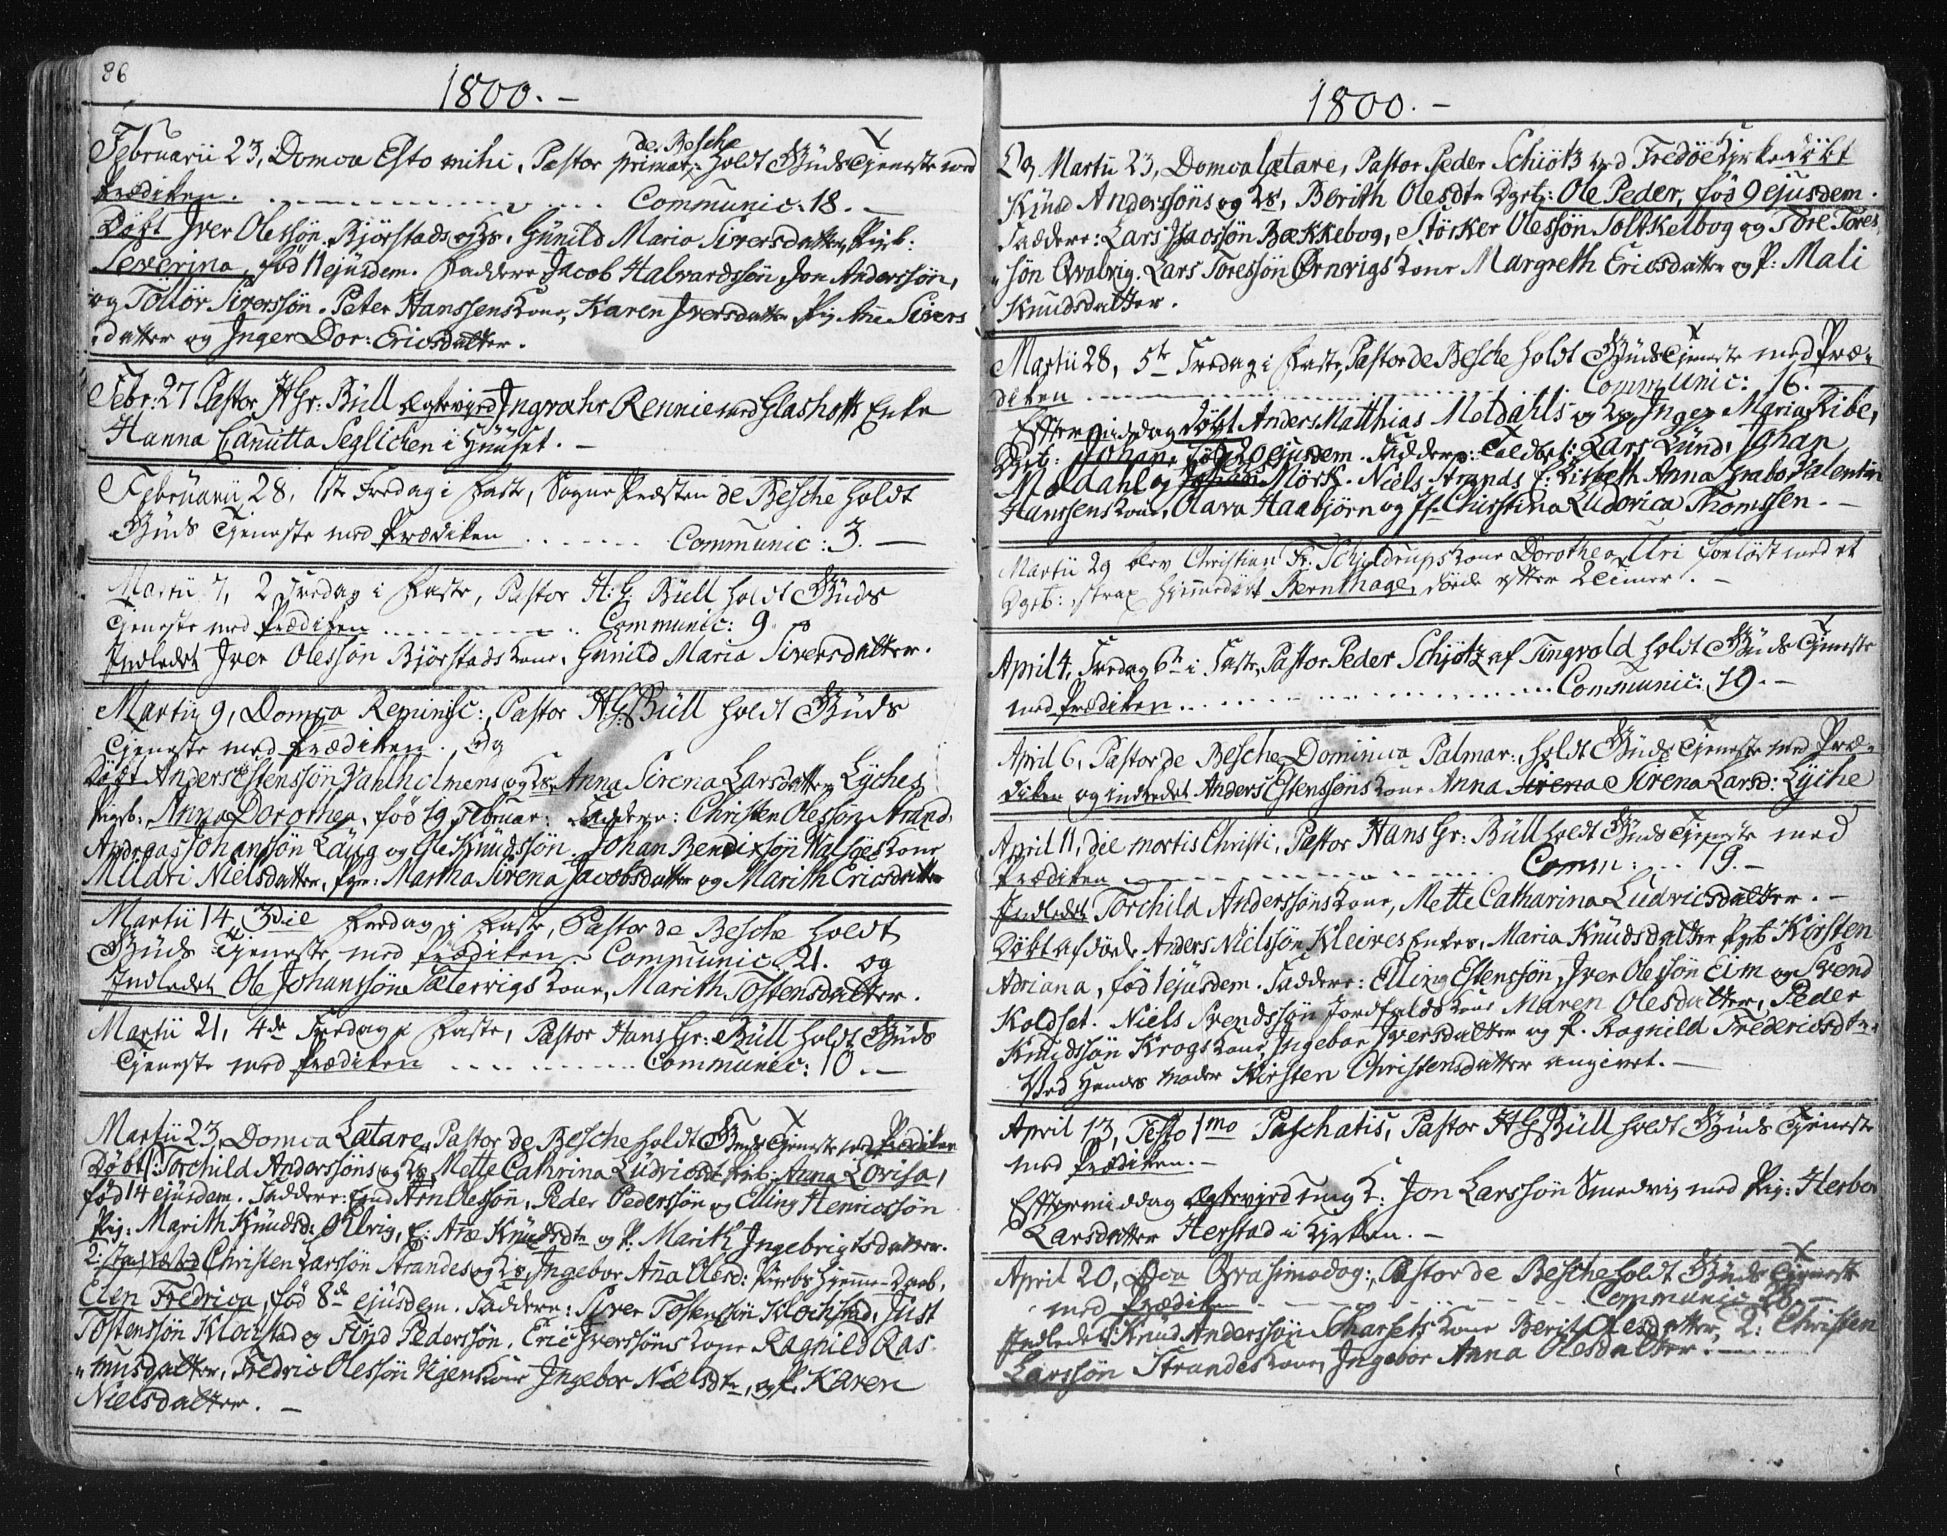 86
1800. –
Februarii 23, Domca Esto mihi. Pastor primar: de Besche holdt Guds Tjeneste med
Prædiken. Communic: 18. –
Døbt Iver Olessøn Bjørstads og Hs. Gunild Maria Siversdatter, Pigeb:
Severina, fød 11 ejusdem. Faddere Jacob Halvardssøn, Jon Anderssøn,
og Tollør Siverssøn. Peter Hanssens Kone, Karen Iversdatter Pig: Ane Sivers
datter og Inger Dor: Ericsdatter.
Febr: 27 Pastor H Gr: Büll Egtevied Ingrahr Rennie med Glashoffs Enke
Hanna Canutta Seglichen i Huuset. –
Februarii 28, 1ste Fredag i Faste, Sogne Præsten de Besche holdt
Guds Tjeneste med Prædiken Communic: 3. –
Martii 7, 2 Fredag i Faste, Pastor H: G. Büll holdt Guds
Tjeneste med Prædiken Communic: 9.
Indledet Iver Olessøn Bjørstads Kone, Gunild Maria Siversdatter.
Martii 9, Domca Reminisc: Pastor H G: Büll holdt Guds
Tjeneste med Prædiken. Og
Døbt Anders Estenssøn Vahlholmens og Hs. Anna Sirena Larsdatter Lyches
Pigeb: Anna Dorothea, fød 19 Februar: Faddere: Christen Olessøn Strand,
Andreas Johanssøn Laug og Ole Knudssøn. Johan Bendixsøn Walsøes Kone
Mildri Nielsdatter, Pger: Martha Sirena Jacobsdatter og Marith Ericsdatter
Martii 14 3die Fredag i Faste, Pastor de Besche holdt
Guds Tjeneste med Prædiken. Communic. 21. og
Indledet Ole Johanssøn Sætervigs Kone, Marith Tostensdatter.
Martii 21, 4de Fredag i Faste, Pastor Hans Gr: Büll holdt Guds
Tjeneste med Prædiken Communic: 10. –
Martii 23, Domca Lætare, Pastor de Besche holdt Guds Tjeneste med Prædiken
Døbt 1: Torchild Anderssøns og Hs. Mette Cathrina Ludvicsdt Pigeb: Anna Lovisa,
fød 14 ejusdem. Faddere: Arn Olessøn, Peder Pederssøn og Elling Henricssøn
Pig: Marith Knudsd: E: Ane Knudsdtr og P: Marith Ingebrigtsdatter.
2: Christen Larssøn Strandes og Hs. Ingebor Aña Olesd: Pigebs Hjemme-Daab,
Elen Fredrica, fød 8de ejusdem. Faddere: Siver Tostenssøn Klochstad, Just
Tostenssøn Klochstad og Find Pederssøn. Eric Iverssøns Kone Ragnild Ras
musdatter, Fredric Olessøn Kone Ingebor Nielsdtr, og P. Karen
Nielsdatter. –
1800. –
Og Martii 23, Domca Lætare, Pastor Peder Schiøtz ved Fredøe Kirke døbt
Knud Anderssøns og Hs. Berith Olesdtr Dgeb: Ole Peder, fød 9 ejusdem.
Faddere: Lars Bækkebog, Størker Olessøn Soltkelbog og Tore Tores
søn Qvalvig. Lars Toressøn Ørnvigs Kone Margreth Ericsdatter og P: Mali
Knudsdatter.
Martii 28, 5te Fredag i Faste, Pastor de Besche holdt Guds Tjeneste med Præ-
diken Communic: 16. –
Eftermiddag døbt Anders Matthias Moldahls og Hs. Inger Maria Ribe,
Dgeb: Johan, fød 20 ejusdem. Faddere: Lars Lund, Johan
Moldahl og Mörk. Niels Strands E: Lisbeth Anna Grabo Valentin
Hanssens Kone, Olava Haabjörn og Jf. Christina Ludovica Thomssen. –
Martii 29 blev Christian Fr: Schjeldrups Kone Dorothea Uri forløst med et
Dgeb: strax hjemmedøbt Bernthage, døde efter 2 Timer. –
April 4, Fredag 6te i Faste, Pastor Peder Schjøtz af Tingvold holdt Guds Tjeneste
med Prædiken. Communic: 19. –
April 6, Pastor de Besche Dominica Palmar:, holdt Guds Tjeneste med Præ-
diken og indledet Anders Estenssøns Kone Anna Sirena Sirena Larsd: Lyche
April 11, die mortis Christi, Pastor Hans Gr: Büll holdt Guds Tjeneste med
Prædiken Comm: 19. –
Indledet Torchild Anderssøns Kone, Mette Catharina Ludvicsdatter. –
Døbt afdøde Anders Nielssøn Kleives Enkes, Maria Knudsdatter Pgeb Kirsten
Adriana, fød 1 ejusdem. Faddere: Elling Estenssøn, Iver Olessøn Eim og Svend
Koldset. Niels Svendssøn Jordfalds Kone Maren Olesdatter, Peder
Knudssøn Krogs Kone, Ingebor Iversdatter og P. Ragnild Fredericsdtr.
Ved Hendes Moder Kirsten Christensdatter angivet. –
April 13, Festo 1mo Paschatis, Pastor H G Büll holdt Guds Tjeneste
med Prædiken. –
Eftermiddag Egteviet ung K: Jon Larssøn Smedvig med Pig: Herbor
Larsdatter Herstad i Kirken. –
April 20, Dca Qvasimodog: Pastor de Besche holdt Guds Tjeneste
med Prædiken Communic 28. –
Indledet: Knud Anderssøn Kone Berit Olesdatter, 2: Christen
Larssøn Strandes Kone, Ingebor Anna Olesdatter.